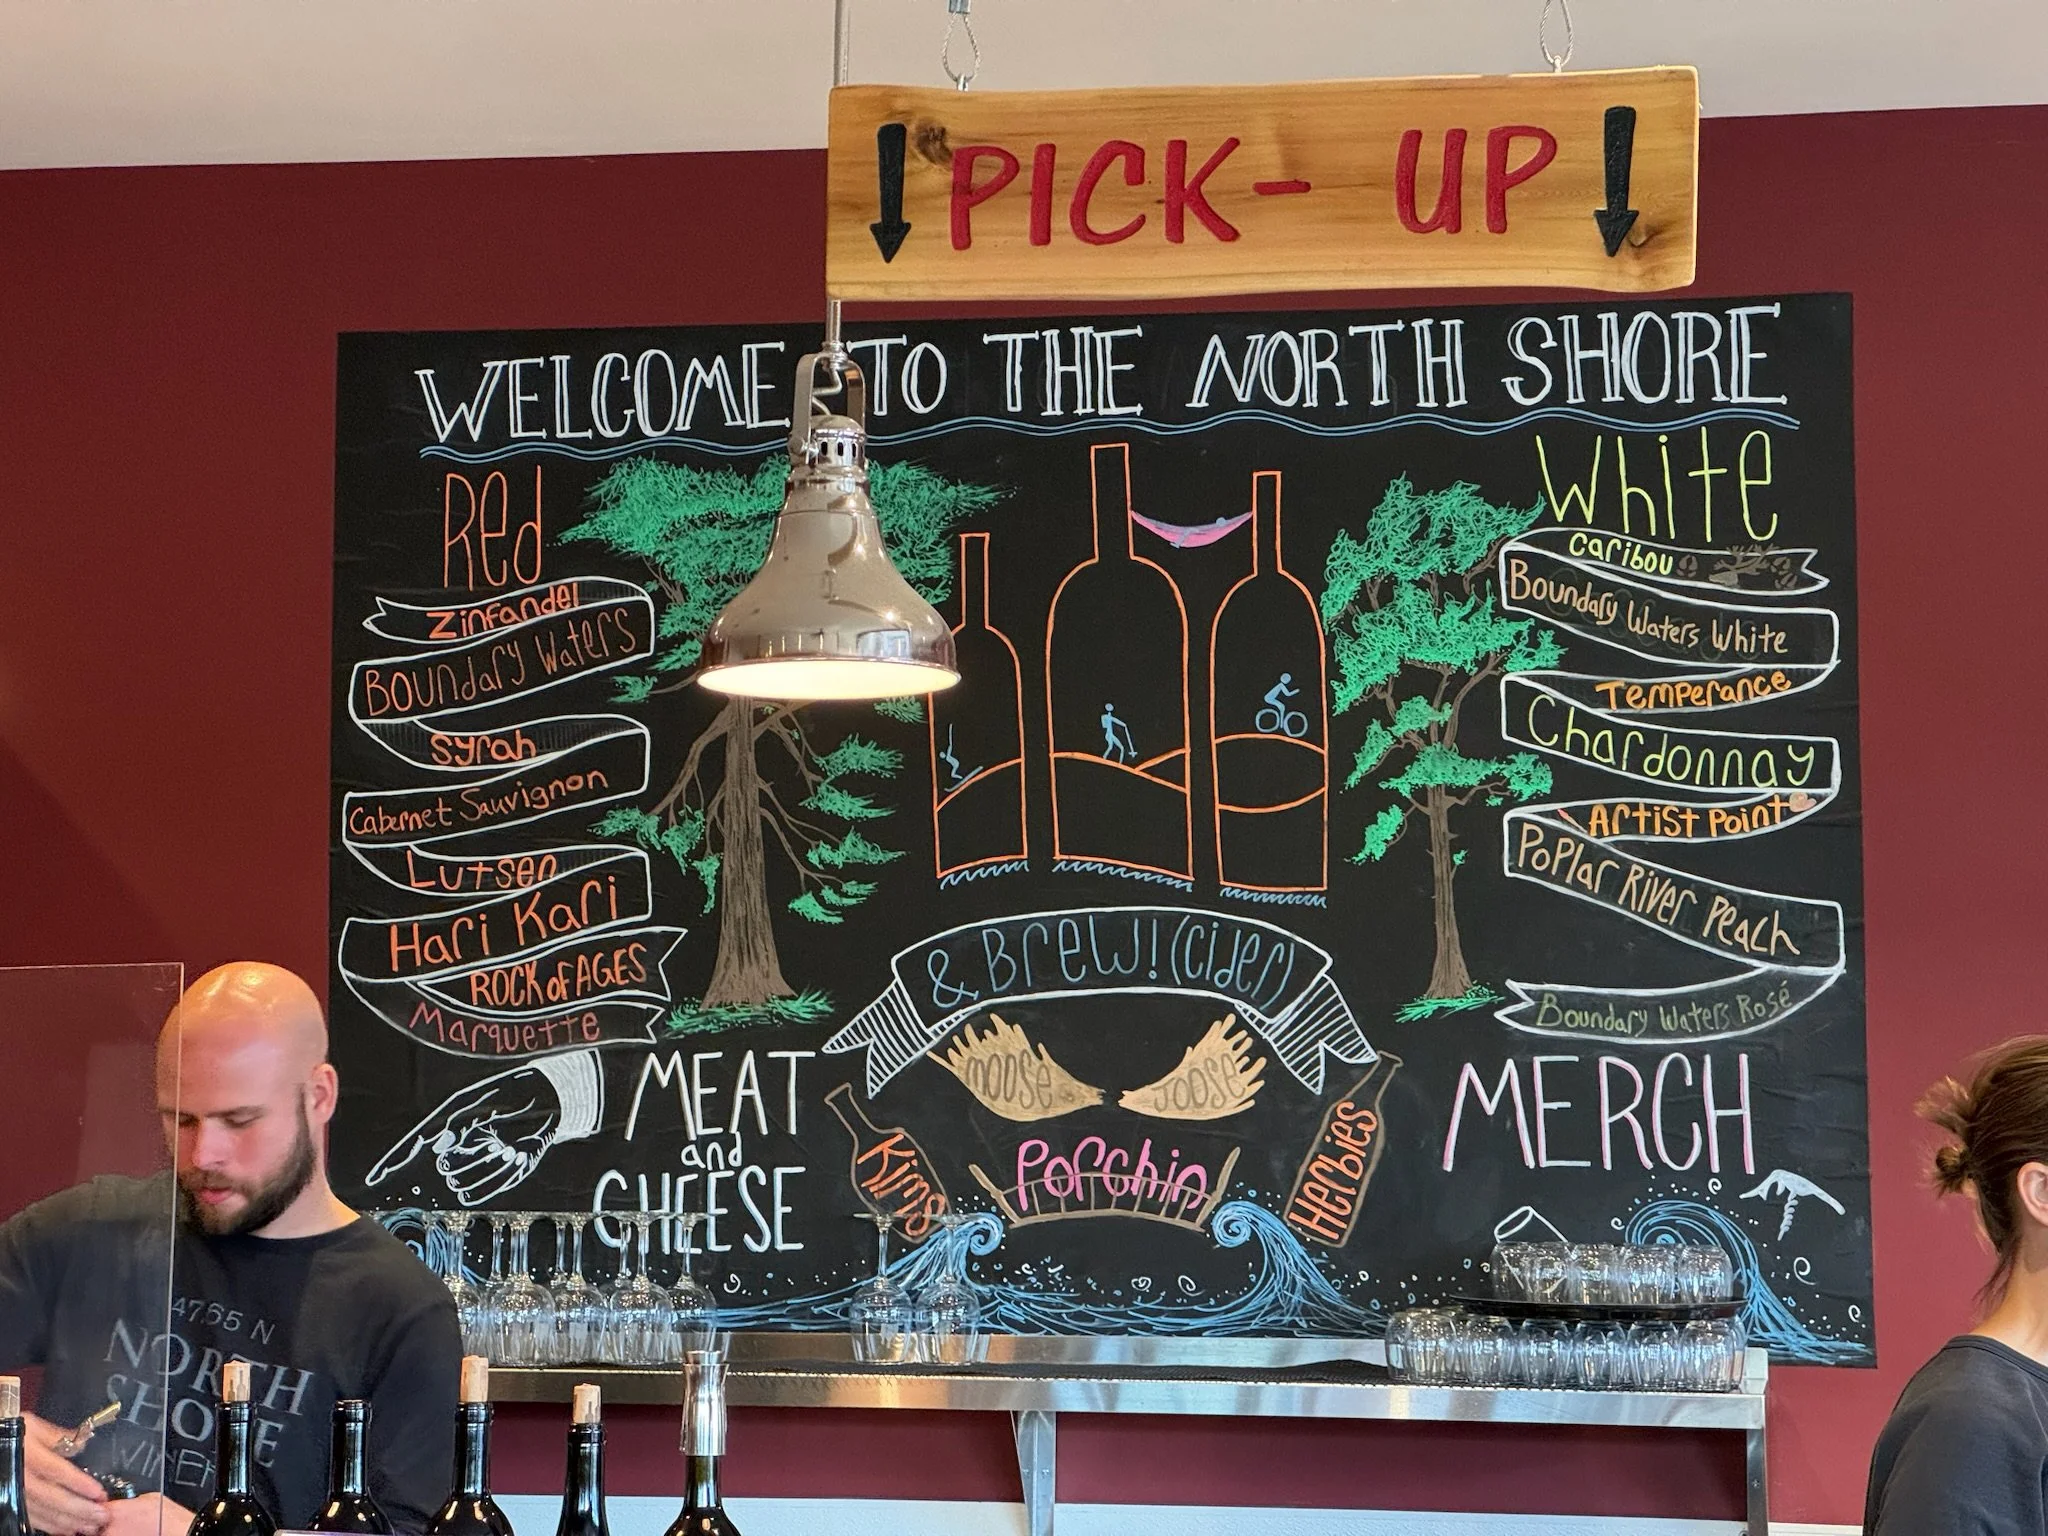 PICK-UP
WELCOME TO THE NORTH SHORE
Red
Zinfandel
Boundary Waters
Syrah
Cabernet Sauvignon
Lutsen
Hari Kari
ROCK of AGES
Marquette
White
caribou
Boundary Waters White
Temperance
Chardonnay
Artist Point
Poplar River Peach
Boundary Waters Rosé
& Brew! (cider)
moose
Joose
Kims
Porchin
Herbies
MEAT
and
CHEESE
MERCH
47.65 N
NORTH
SHORE
WINER